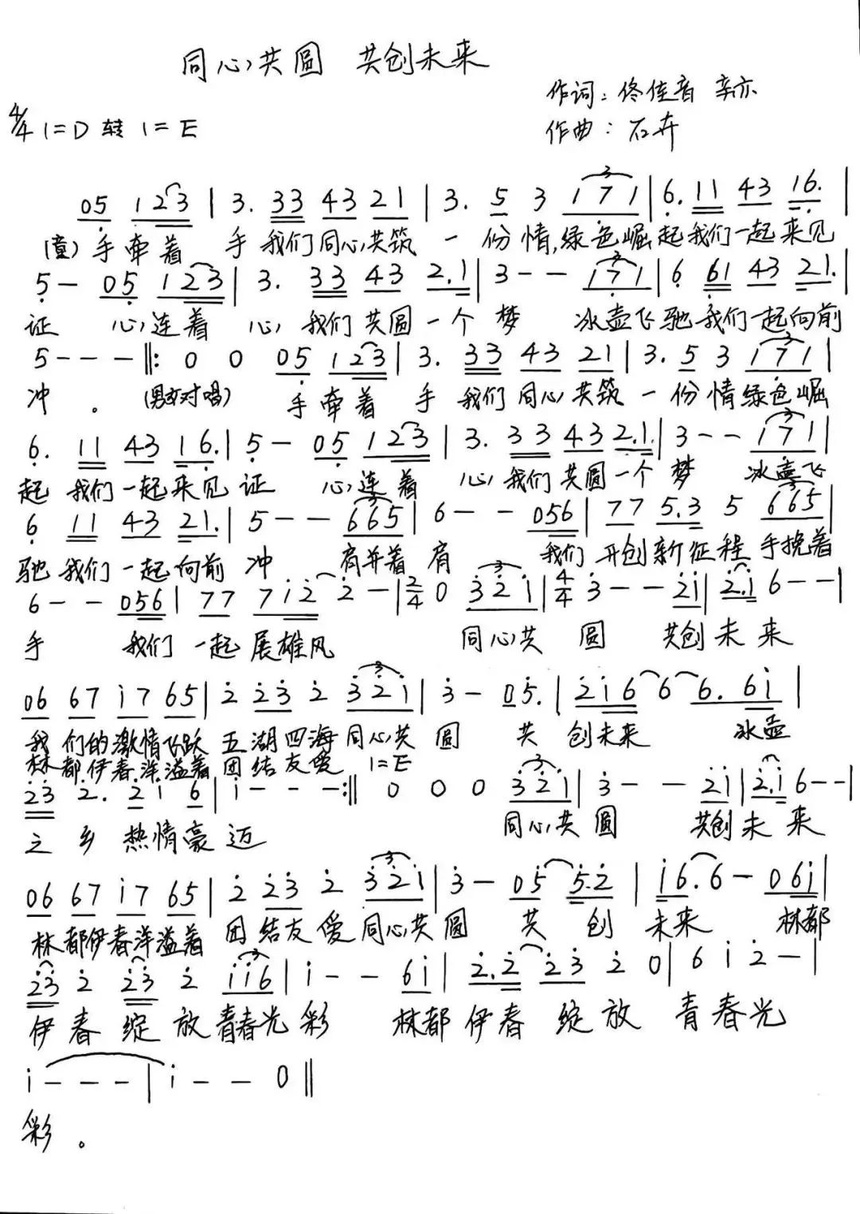 同心共圆 共创未来
作词：佟佳音 辛亦
4/4 1=D 转 1=E
作曲：石卉
05 123 | 3. 33 43 21 | 3. 5 3 171 | 6. 11 43 16. |
(童) 手牵着 手 我们同心共筑 一 份情,绿色崛起我们一起来见
5 - 05 123 | 3. 33 43 2.1 | 3 - - 171 | 6 61 43 21. |
证 心连着 心 我们共圆一个 梦 冰壶飞驰我们一起向前
5 - - - ‖: 0 0 05 123 | 3. 33 43 21 | 3. 5 3 171 |
冲 。 (男女对唱) 手牵着 手 我们同心共筑 一份情绿色崛
6. 11 43 16. | 5 - 05 123 | 3. 33 43 2.1. | 3 - - 171 |
起 我们一起来见 证 心连着 心 我们共圆一个 梦 冰壶飞
6 11 43 21. | 5 - - 665 | 6 - - 056 | 77 5.3 5 665 |
驰 我们一起向前 冲 肩并着 肩 我们 开创新征程 手挽着
6 - - 056 | 77 712 2 - | 2/4 0 321 | 4/4 3 - - 21 | 2.1 6 - - |
手 我们 一起 展雄风 同心共 圆 共创 未 来
06 67 17 65 | 2 23 2 321 | 3 - 05. | 216 6 6. 61 |
我们的激情飞跃 五湖四海同心共 圆 共 创未来 冰壶
林都伊春洋溢着 团结友爱 1=E
23 2. 21 6 | 1 - - - :‖ 0 0 0 321 | 3 - - 21 | 2.1 6 - - |
之 乡 热情豪迈 同心共圆 共创 未 来
06 67 17 65 | 2 23 2 321 | 3 - 05 5.2 | 16. 6 - 061 |
林都伊春洋溢着 团结友爱同心共圆 共 创 未来 林都
23 2 23 2 116 | 1 - - 61 | 2.2 23 2 0 | 6 1 2 - |
伊春 绽 放青春光彩 林都伊春 绽放 青春光
1 - - - | 1 - - 0 ‖
彩 。